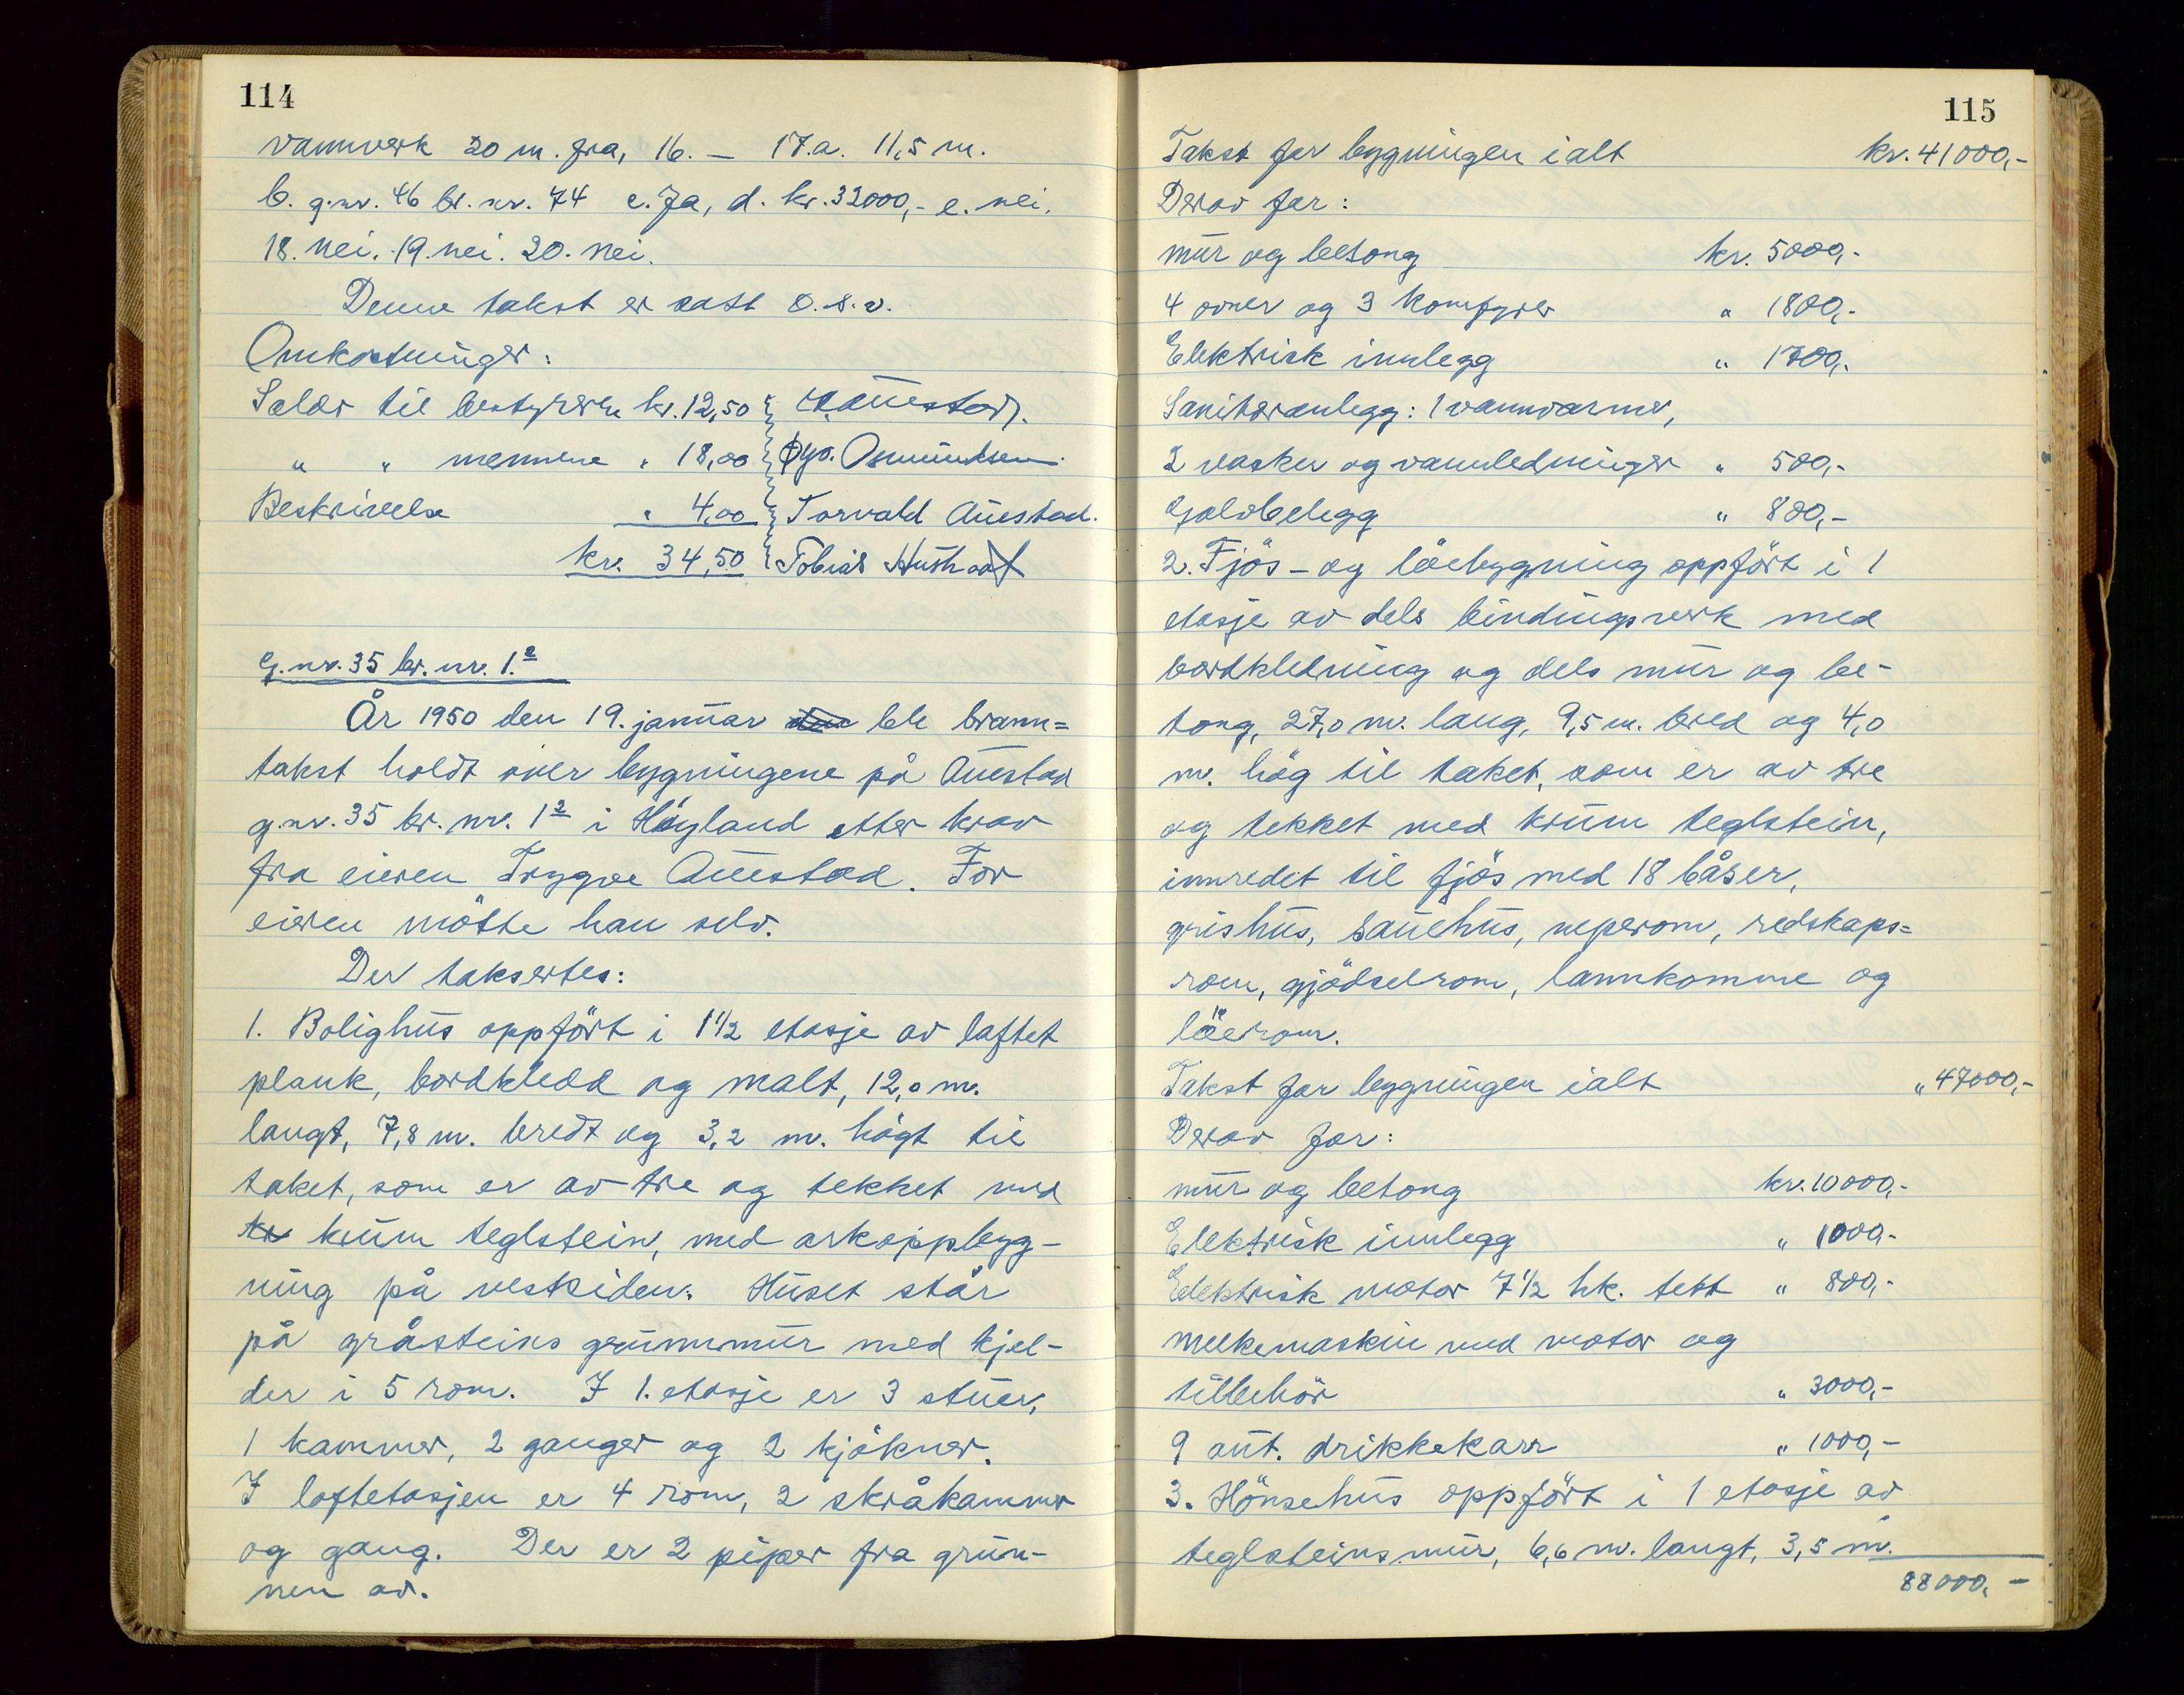 114
vannverk 20 m. fra, 16. — 17.a. 11,5 m.
b. g.nr. 46 br. nr. 74 c. Ja, d. kr. 32000,- e. nei.
18. nei. 19. nei. 20. nei.
Denne takst er satt o.s.v.
Omkostninger:
Salær til bestyreren kr. 12,50
" " mennene " 18,00 Osmundsen
Beskrivelse " 4,00 Torvald Auestad.
kr. 34,50 Tobias
G.nr. 35 br. nr. 1.2
År 1950 den 19. januar ble brann=
takst holdt over bygningene på Auestad
g.nr. 35 br. nr. 12 i Høyland etter krav
fra eieren Trygve Auestad. For
eieren mötte han selv.
Der taksertes:
1. Bolighus oppfört i 1 1/2 etasje av laftet
plank, bordkledd og malt, 12,0 m.
langt, 7,8 m. bredt og 3,2 m. högt til
taket, som er av tre og tekket med
kr krum teglstein, med arkoppbyg-
ning på vestsiden. Huset står
på gråsteins grunnmur med kjel-
der i 5 rom. I 1. etasje er 3 stuer,
1 kammer, 2 ganger og 2 kjökner.
I loftetasjen er 4 rom, 2 skråkammer
og gang. Der er 2 piper fra grun-
nen av.
115
Takst for bygningen ialt kr. 41000,-
Derav for:
mur og betong kr. 5000,-
4 ovner og 3 komfyrer " 1800,-
Elektrisk innlegg " 1700,-
Sanitæranlegg: 1 vannvarmer,
2 vasker og vannledninger " 500,-
Golvbelegg " 800,-
2. Fjös- og löebygning oppfört i 1
etasje av dels bindingsverk med
bordkledning og dels mur og be-
tong, 27,0 m. lang, 9,5 m. bred og 4,0
m. hög til taket, som er av tre
og tekket med krum teglstein,
innredet til fjös med 18 båser,
grishus, sauehus, neperom, redskaps=
rom, gjödselrom, lannkomme og
löerom.
Takst for bygningen ialt " 47000,-
Derav for:
mur og betong kr. 10000,-
Elektrisk innlegg " 1000,-
Elektrisk motor 7 1/2 hk. tett " 800,-
melkemaskin med motor og
tilbehör " 3000,-
9 aut. drikkekarr " 1000,-
3. Hönsehus oppfört i 1 etasje av
teglsteinsmur, 6,6 m. langt, 3,5 m.
88000,-